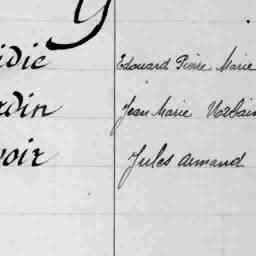 G
idie Edouard Pierre Marie
rdin Jean Marie Urbain
voir Jules Armand